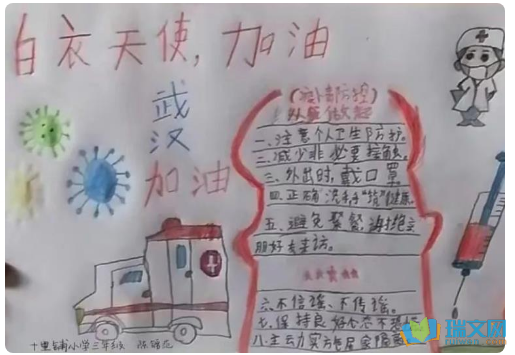 白衣天使，加油
武汉
加油
（疫情防控）
从我做起
一、注意个人卫生防护。
二、减少非必要接触。
三、外出时，戴口罩
四、正确洗手"筑"健康
五、避免聚餐，谢绝亲
朋好友来访。
六、不信谣、不传谣。
七、保持良好心态不
八、主动实施居家隔离
十里铺小学三年级
瑞文网